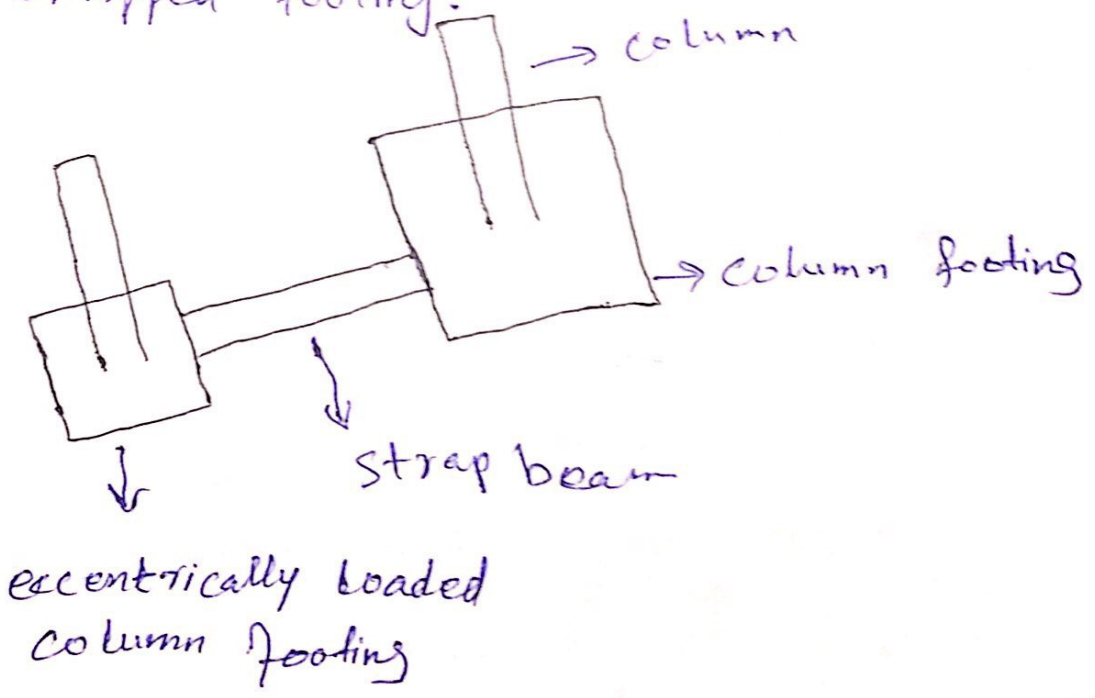 footing.
column
column footing
strap beam
eccentrically loaded
column footing